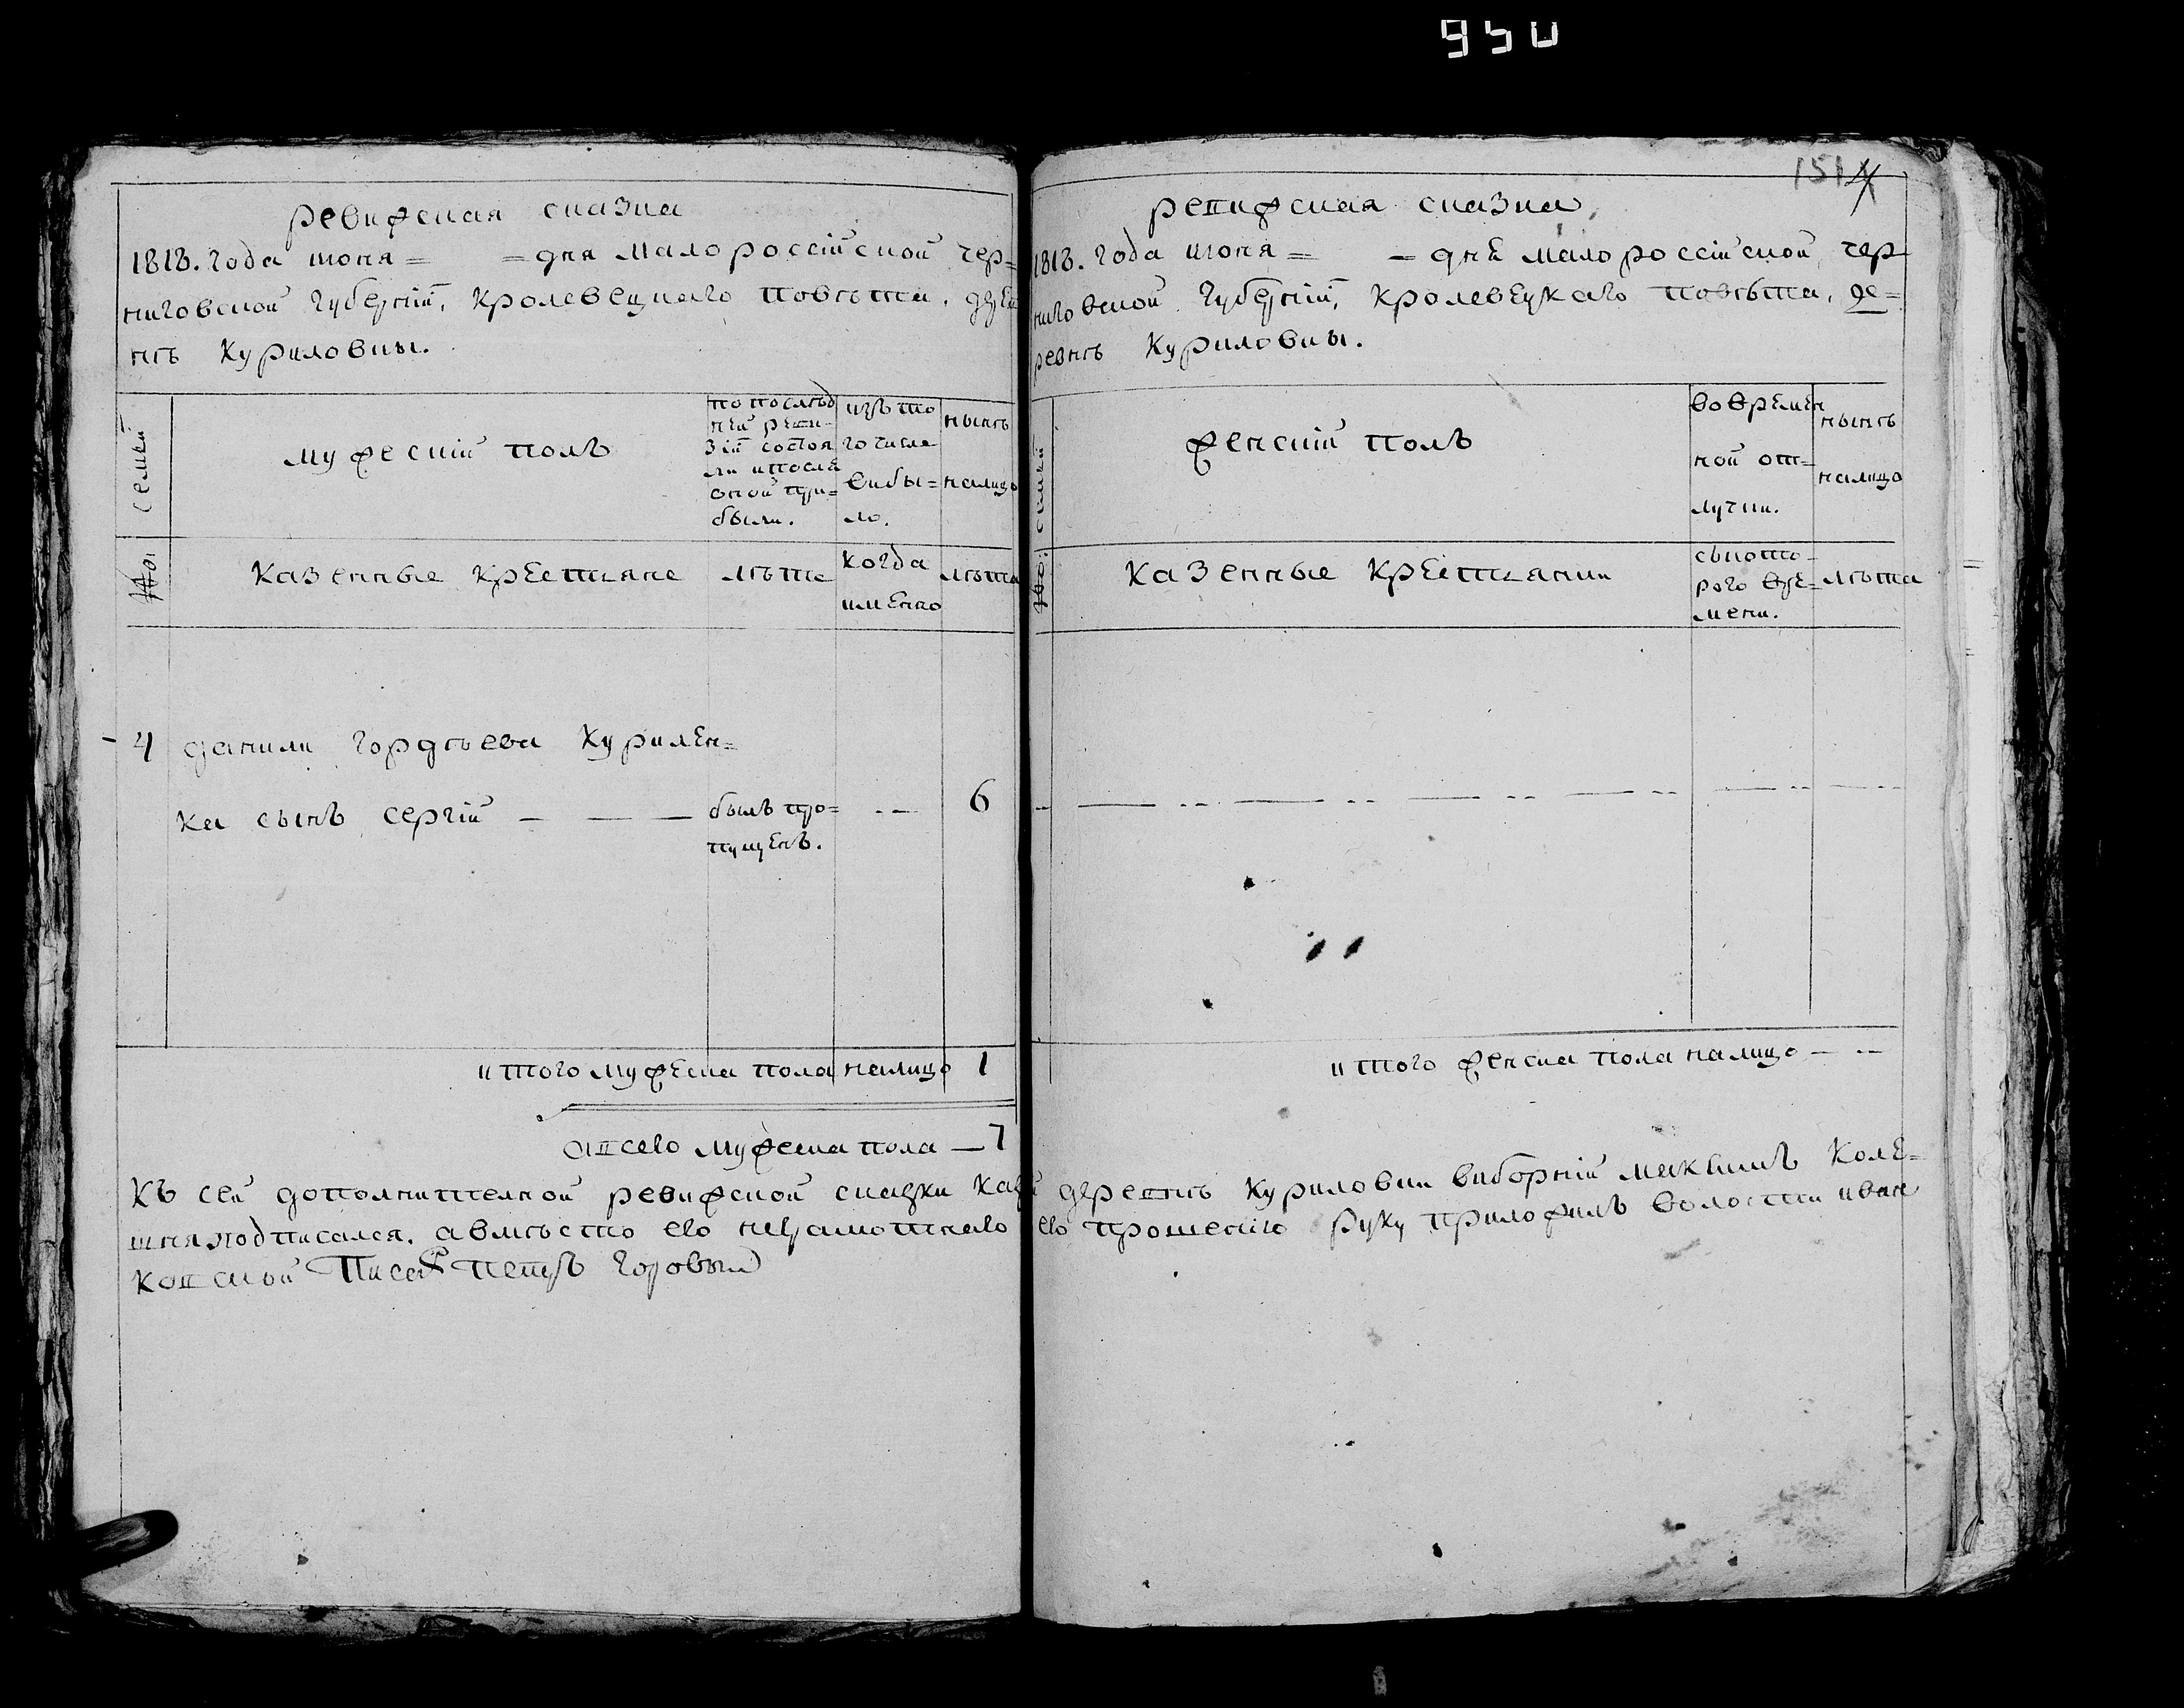 950
ревижская сказка
1818. года июня = = дня малороссійской чер=
ниговской губерніи, кролевецкаго повѣта, дерев
нѣ Куриловки.
№: семей
мужескій полъ
по послѣд
ней реви-
зіи состоя
ли и после
оной при=
были.
изъ то
го числа
вибы=
ло.
нынѣ
налицо
Казенные крестьяне
лѣта
когда
именно
лѣта
4 данили гордѣева Курилен=
ка сынъ сергій — — —
былъ про=
пущенъ.
6
итого мужеска пола налицо 1
а всего мужеска пола — 7
151
4
ревижская сказка
1818. года июня = = дня малороссійской чер
ниговской губерніи, кролевецкаго повѣта, де=
ревнѣ Куриловки.
№: семей
женскій полъ
во времен
ной от=
лучки.
нынѣ
налицо
Казенные крестьянки
съ кото-
рого вре-
мени.
лѣта
итого женска пола налицо — --
Къ сей дополнителной ревижской сказки каз деревнѣ Куриловки виборній максимъ Коле=
шня подписался. а вмѣсто его неграмотнаго его прошенію руку приложилъ волости иван
ковской Писарь петръ Горовый